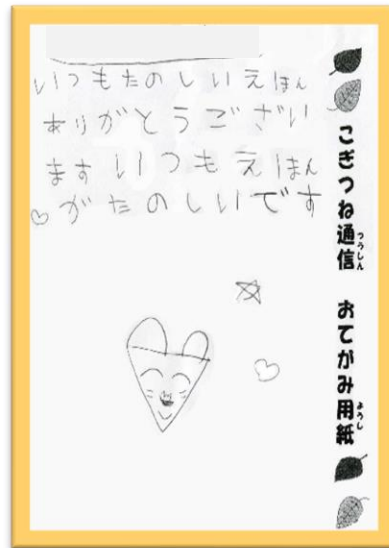 いつもたのしいえほん
ありがとうござい
ます いつもえほん
がたのしいです
こぎつね通信 おてがみ用紙
つうしん
ようし